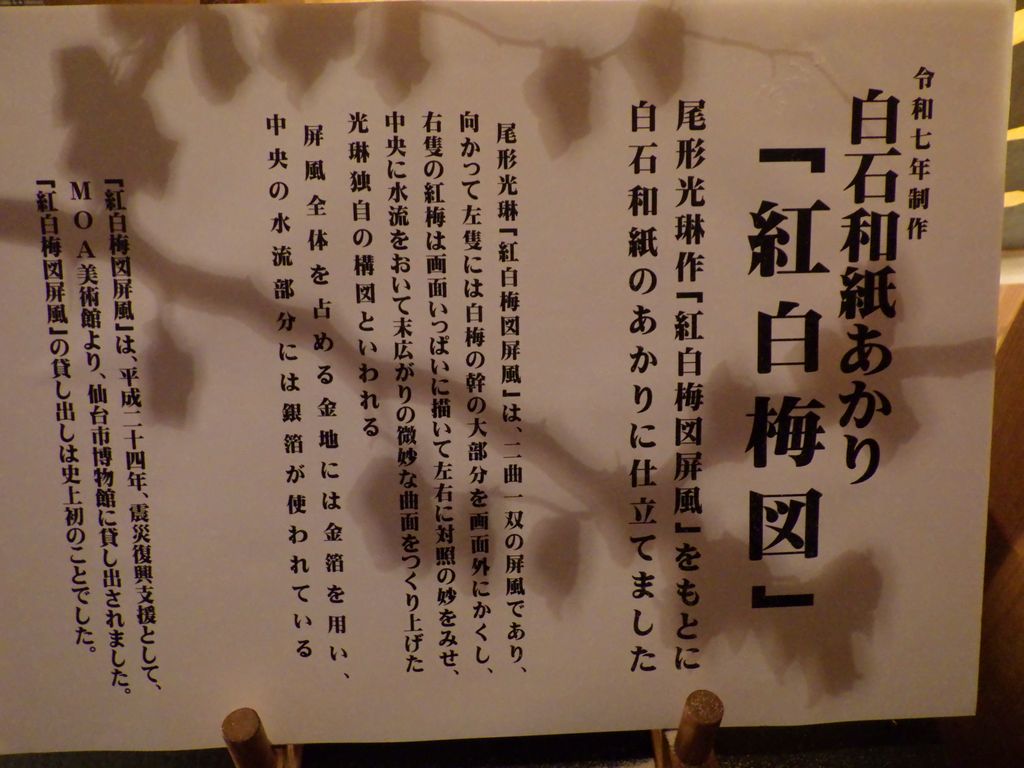 令和七年制作
白石和紙あかり
『紅白梅図』
尾形光琳作『紅白梅図屏風』をもとに
白石和紙のあかりに仕立てました
尾形光琳『紅白梅図屏風』は、二曲一双の屏風であり、
向かって左隻には白梅の幹の大部分を画面外にかくし、
右隻の紅梅は画面いっぱいに描いて左右に対照の妙をみせ、
中央に水流をおいて末広がりの微妙な曲面をつくり上げた
光琳独自の構図といわれる
屏風全体を占める金地には金箔を用い、
中央の水流部分には銀箔が使われている
『紅白梅図屏風』は、平成二十四年、震災復興支援として、
MOA美術館より、仙台市博物館に貸し出されました。
『紅白梅図屏風』の貸し出しは史上初のことでした。